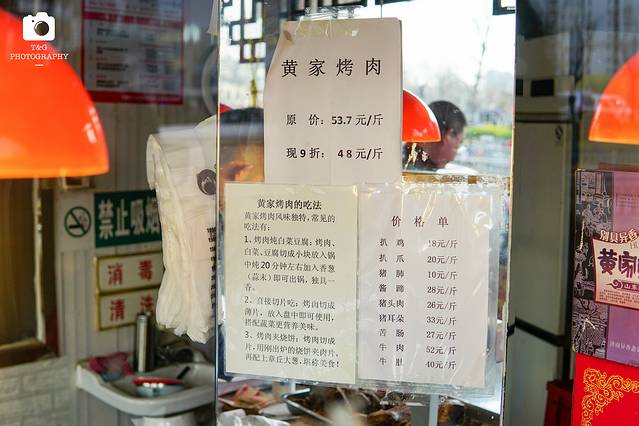 T&G
PHOTOGRAPHY
黄家烤肉
原 价：53.7元/斤
现9折：48元/斤
黄家烤肉的吃法
黄家烤肉风味独特，常见的
吃法有：
1、烤肉炖白菜豆腐：烤肉、
白菜、豆腐切成小块放入锅
中炖20分钟左右加入香葱
（蒜末）即可出锅，独具一
香。
2、直接切片吃：烤肉切成
薄片，放入盘中即可使用，
搭配蔬菜更营养美味。
3、烤肉夹烧饼：烤肉切成
片，用刚出炉的烧饼夹肉片，
再配上章丘大葱，堪称美食！
价格单
扒 鸡 18元/斤
扒 爪 20元/斤
猪 肺 10元/斤
酱 蹄 28元/斤
猪头肉 26元/斤
猪耳朵 33元/斤
苦 肠 27元/斤
牛 肉 52元/斤
牛 肚 40元/斤
禁止吸烟
消毒
清洗
黄家